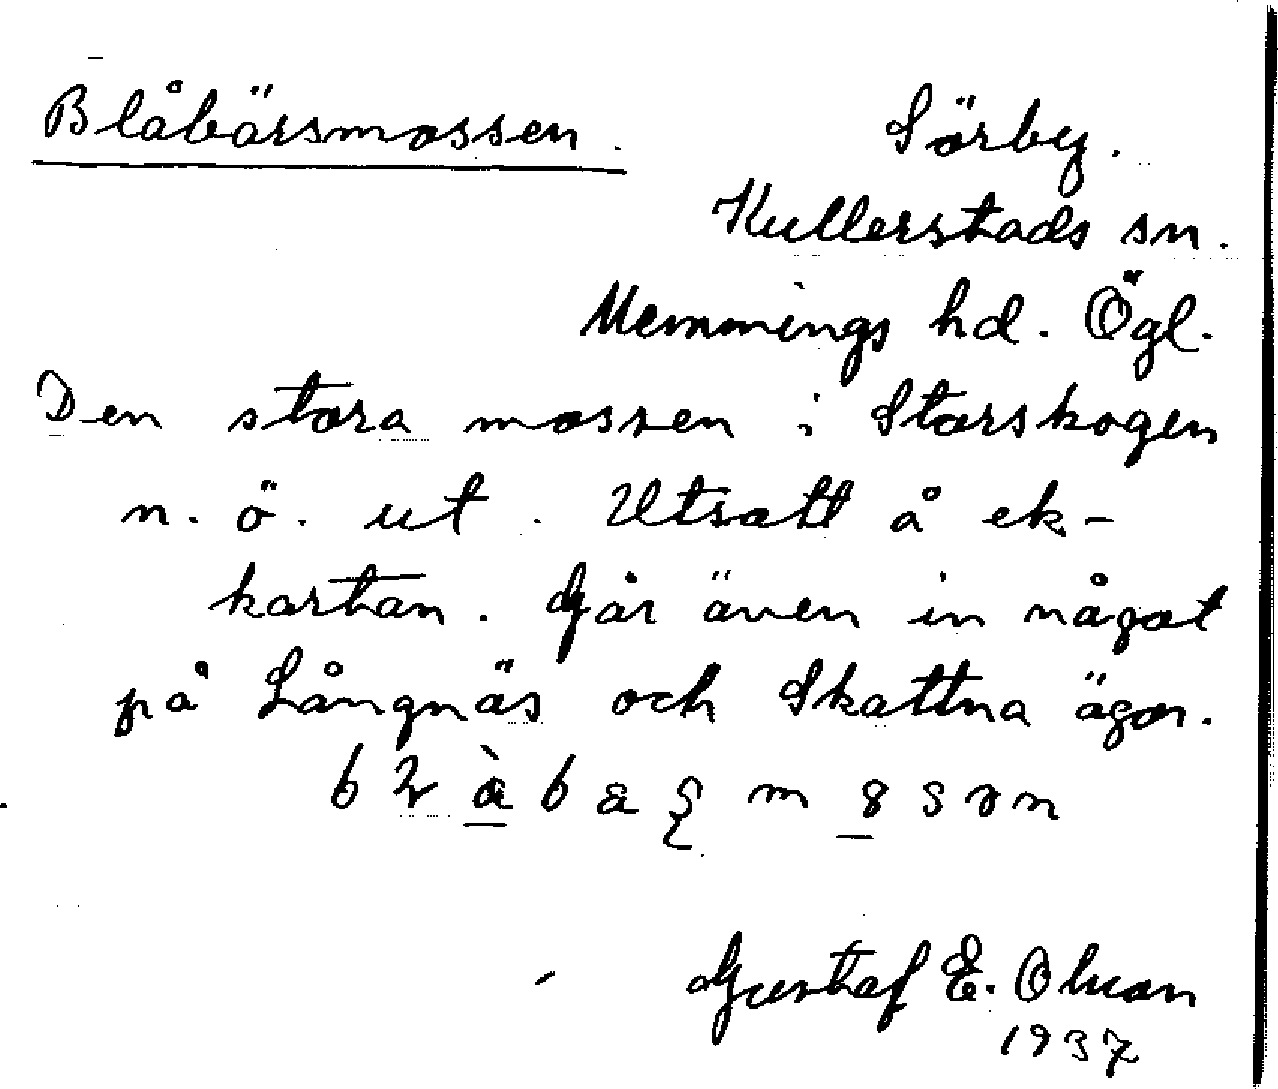 Blåbärsmossen. Sörby.
Kullerstads sn.
Memmings hd. Ögl.
Den stora mossen i Storskogen
n. ö. ut. Utsatt å ek-
kartan. Går även in något
på Långnäs och Skattna ägor.
Gustaf E. Olsson
1937